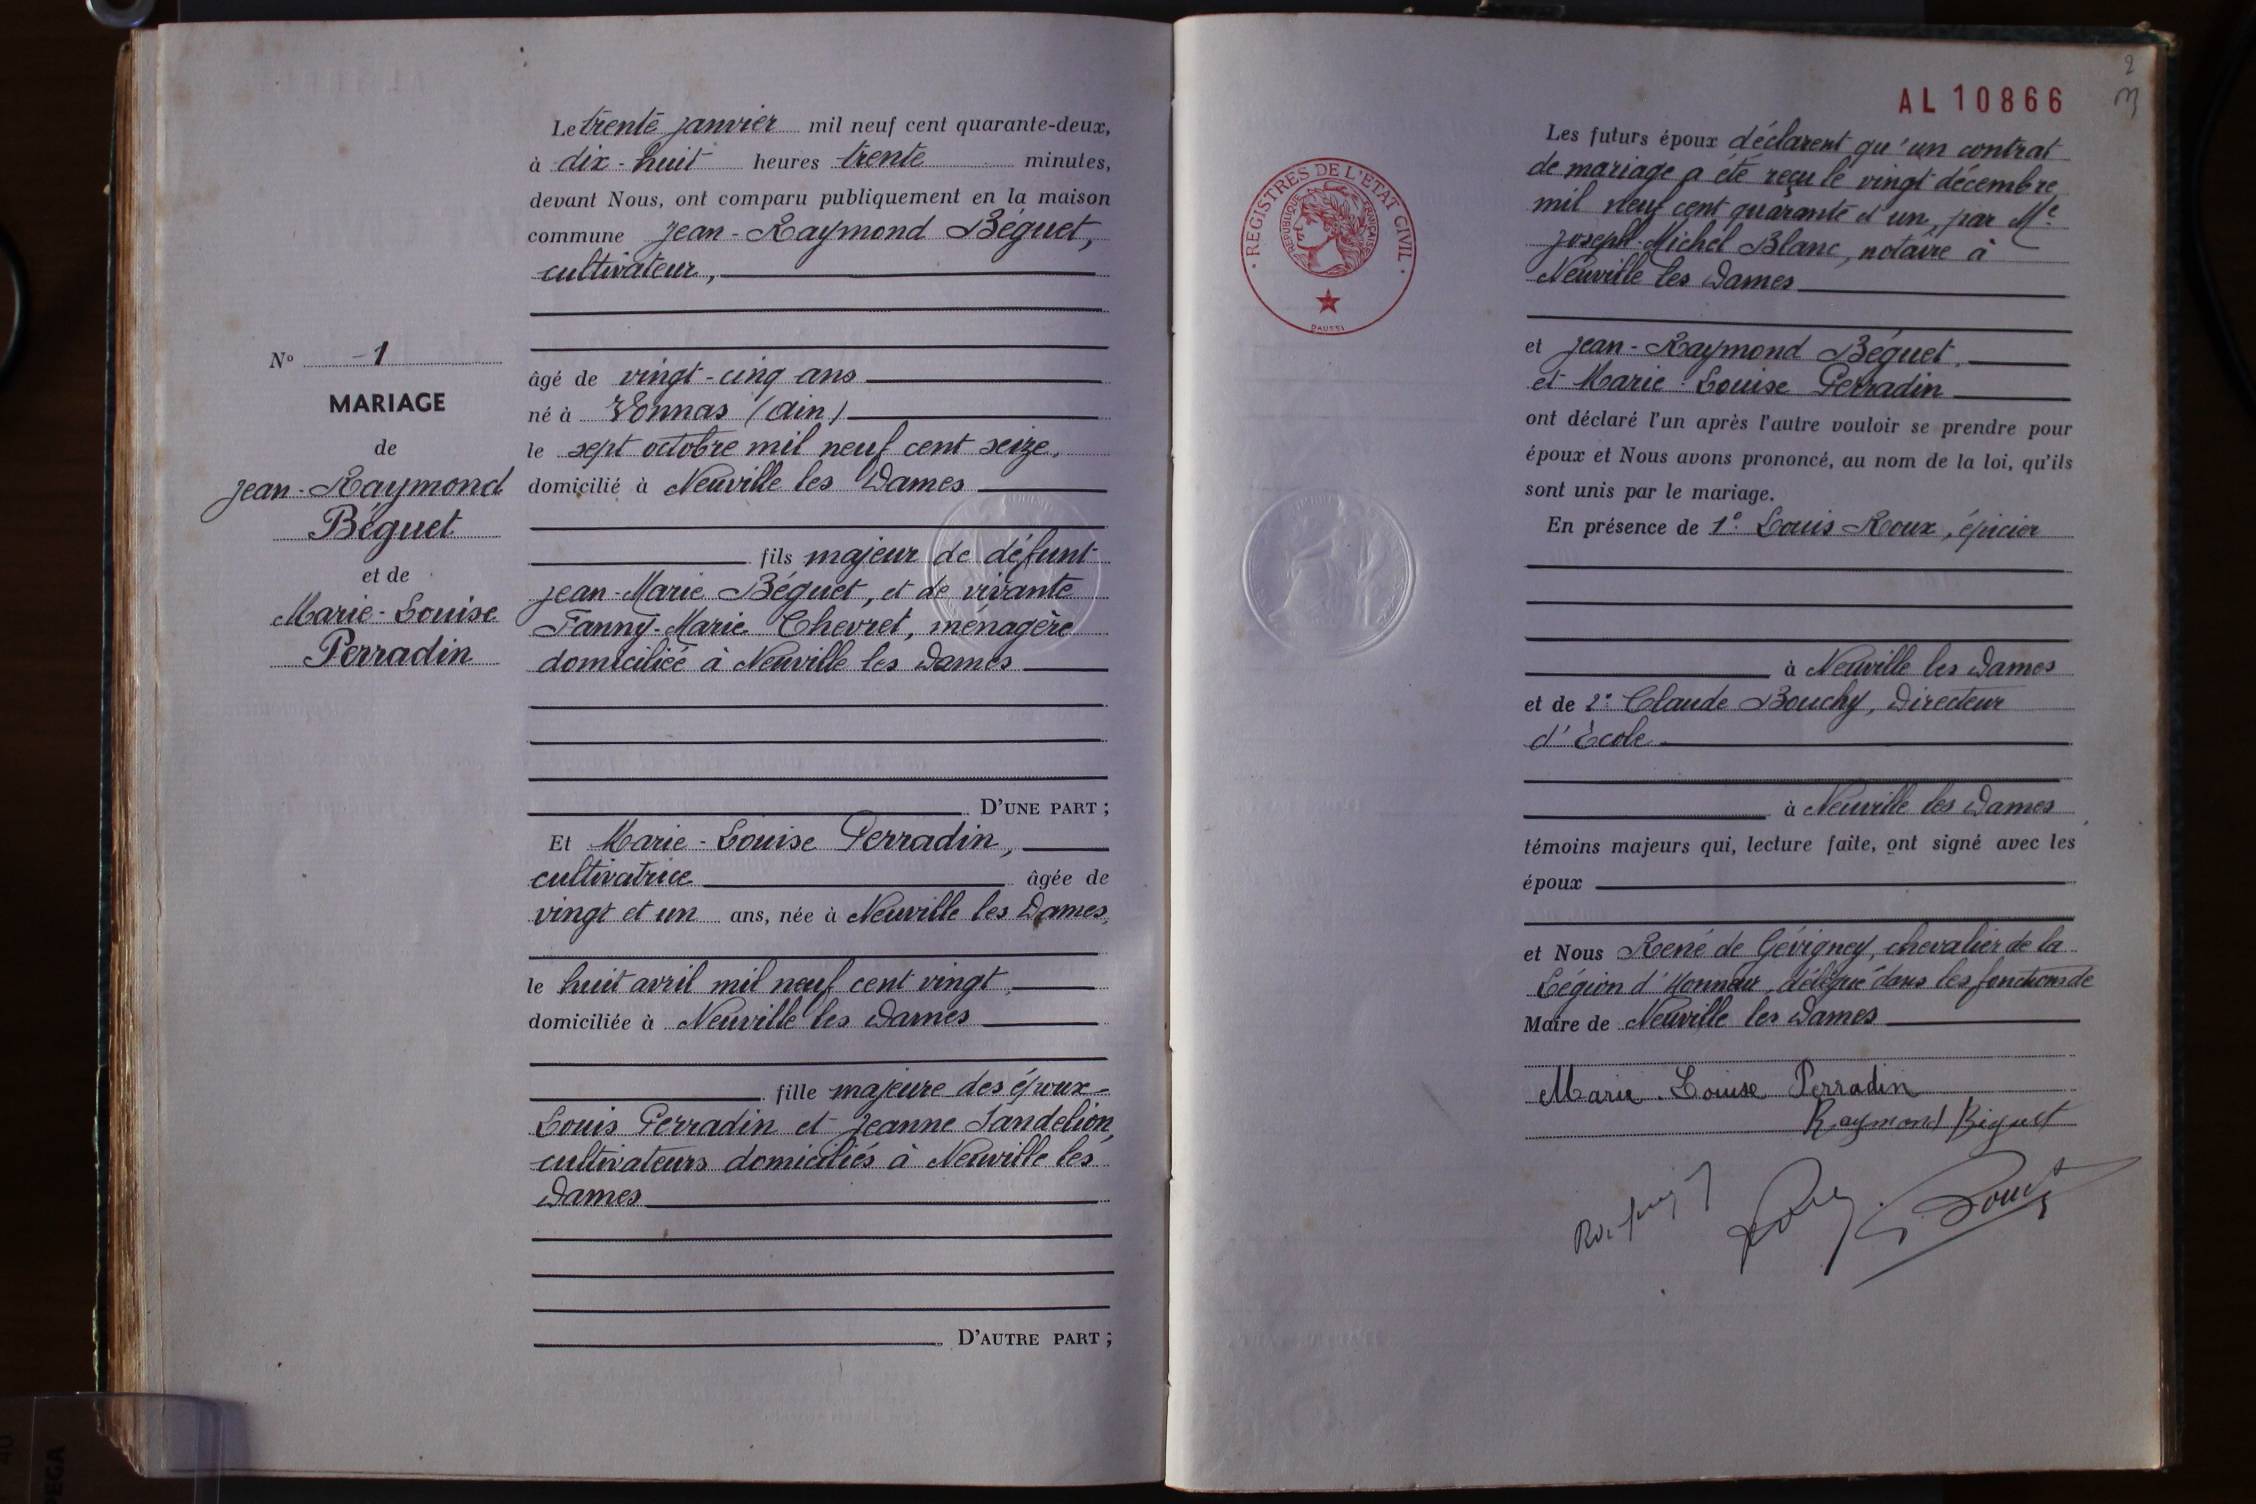 Le trente janvier mil neuf cent quarante-deux,
à dix-huit heures trente minutes,
devant Nous, ont comparu publiquement en la maison
commune Jean-Raymond Béguet,
cultivateur,
N° 1
MARIAGE
de
Jean-Raymond
Béguet
et de
Marie-Louise
Perradin
âgé de vingt-cinq ans
né à Vonnas (Ain)
le sept octobre mil neuf cent seize,
domicilié à Neuville les Dames
fils majeur de défunt
Jean-Marie Béguet, et de vivante
Fanny-Marie Chevret, ménagère
domiciliée à Neuville les Dames
D'UNE PART ;
Et Marie-Louise Perradin,
cultivatrice âgée de
vingt et un ans, née à Neuville les Dames,
le huit avril mil neuf cent vingt,
domiciliée à Neuville les Dames
fille majeure des époux
Louis Perradin et Jeanne Jandelion,
cultivateurs domiciliés à Neuville les
Dames
D'AUTRE PART ;
AL 10866
2
REGISTRES DE L'ETAT CIVIL
REPUBLIQUE FRANÇAISE
DAUSSI
Les futurs époux déclarent qu'un contrat
de mariage a été reçu le vingt décembre
mil neuf cent quarante et un, par Me
Joseph-Michel Blanc, notaire à
Neuville les Dames
et Jean-Raymond Béguet.
et Marie-Louise Perradin
ont déclaré l'un après l'autre vouloir se prendre pour
époux et Nous avons prononcé, au nom de la loi, qu'ils
sont unis par le mariage.
En présence de 1° Louis Roux, épicier
à Neuville les Dames
et de 2° Claude Bouchy, Directeur
d'École
à Neuville les Dames
témoins majeurs qui, lecture faite, ont signé avec les
époux
et Nous René de Gévigney, chevalier de la
Légion d'Honneur, délégué dans les fonctions de
Maire de Neuville les Dames
Marie-Louise Perradin
Raymond Béguet